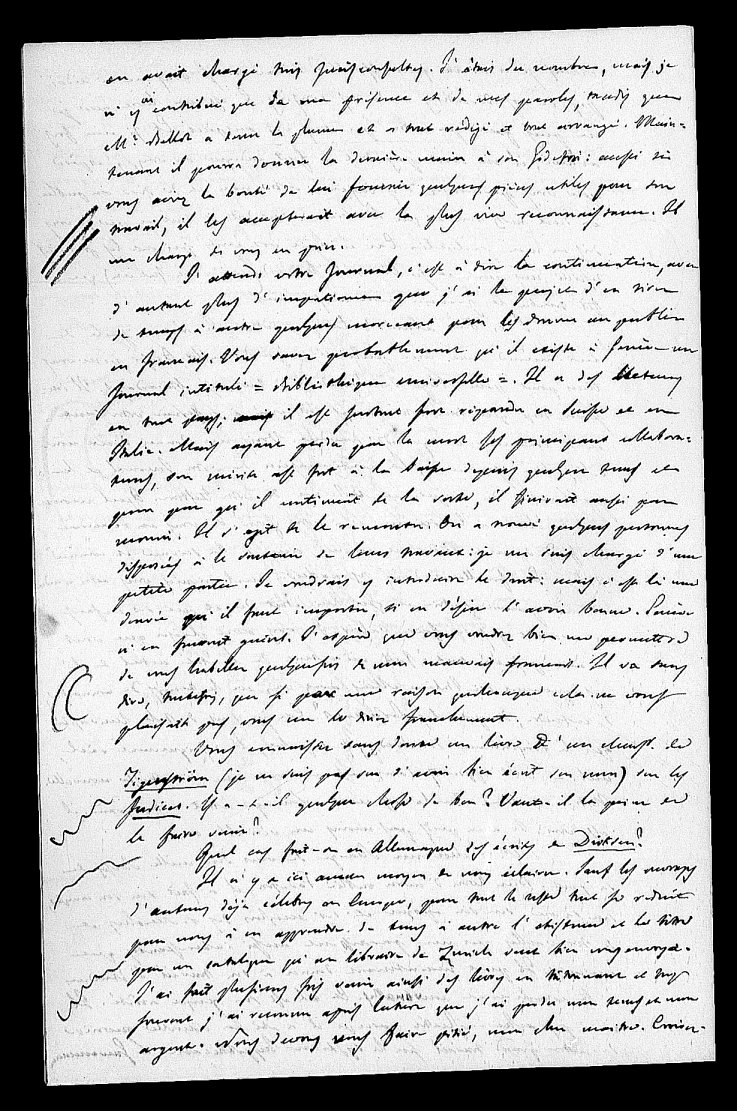 en avait chargé trois Jurisconsultes. J'étais du nombre, mais je
n'y ai contribué que de ma présence et de mes paroles, tandis que
Mr. Bellot a tenu la plume et a tout rédigé et tout arrangé. Main-
tenant il pourra donner la dernière main à son : aussi si
vous aviez la bonté de lui fournir quelques pièces utiles pour son
travail, il les accepterait avec la plus vive reconnaissance. Il
me charge de vous en prier.
J'attends votre Journal, c'est à dire la continuation, avec
d'autant plus d'impatience que j'ai le projet d'en tirer
de temps à autre quelques morceaux pour les donner au public
en français. Vous savez probablement qu'il existe à Genève un
Journal intitulé = Bibliothèque universelle =. Il a des lecteurs
en tout pays; il est surtout fort répandu en Suisse et en
Italie. Mais ayant perdu par la mort ses principaux collabora-
teurs, son mérite est fort à la baisse depuis quelque temps et
pour peu qu'il continuât de la sorte, il finirait aussi par
mourir. Il s'agit de le remonter. On a trouvé quelques personnes
disposées à le soutenir de leurs travaux: je me suis chargé d'une
petite partie. Je voudrais y introduire le droit: mais c'est là une
denrée qu'il faut importer, si on désire l'avoir bonne. Genève
n'en fournit guères. J'espère que vous voudrez bien me permettre
de vous habiller quelquefois de mon mauvais français. Il va sans
dire, toutefois, que si pour une raison quelconque cela ne vous
plaisait pas, vous me le diriez franchement.
Vous connaissez sans doute un livre d'un de
Tigerström (je ne suis pas sûr d'avoir bien écrit son nom) sur les
Judices. Y a-t-il quelque chose de bon? Vaut-il la peine de
le faire venir?
Quel cas fait-on en Allemagne des écrits de Dirksen?
Il n'y a ici aucun moyen de nous éclairer. Sauf les ouvrages
d'auteurs déjà célèbres en Europe, pour tout le reste tout se réduit
pour nous à en apprendre de temps à autre l'existence et le titre
par un catalogue qu'un libraire de Zurich veut bien nous envoyer.
J'ai fait plusieurs fois venir ainsi des livres en tâtonnant et trop
souvent j'ai reconnu après lecture que j'ai perdu mon temps et mon
argent. Nous devons vous faire pitié, mon cher maître. Croiriez-